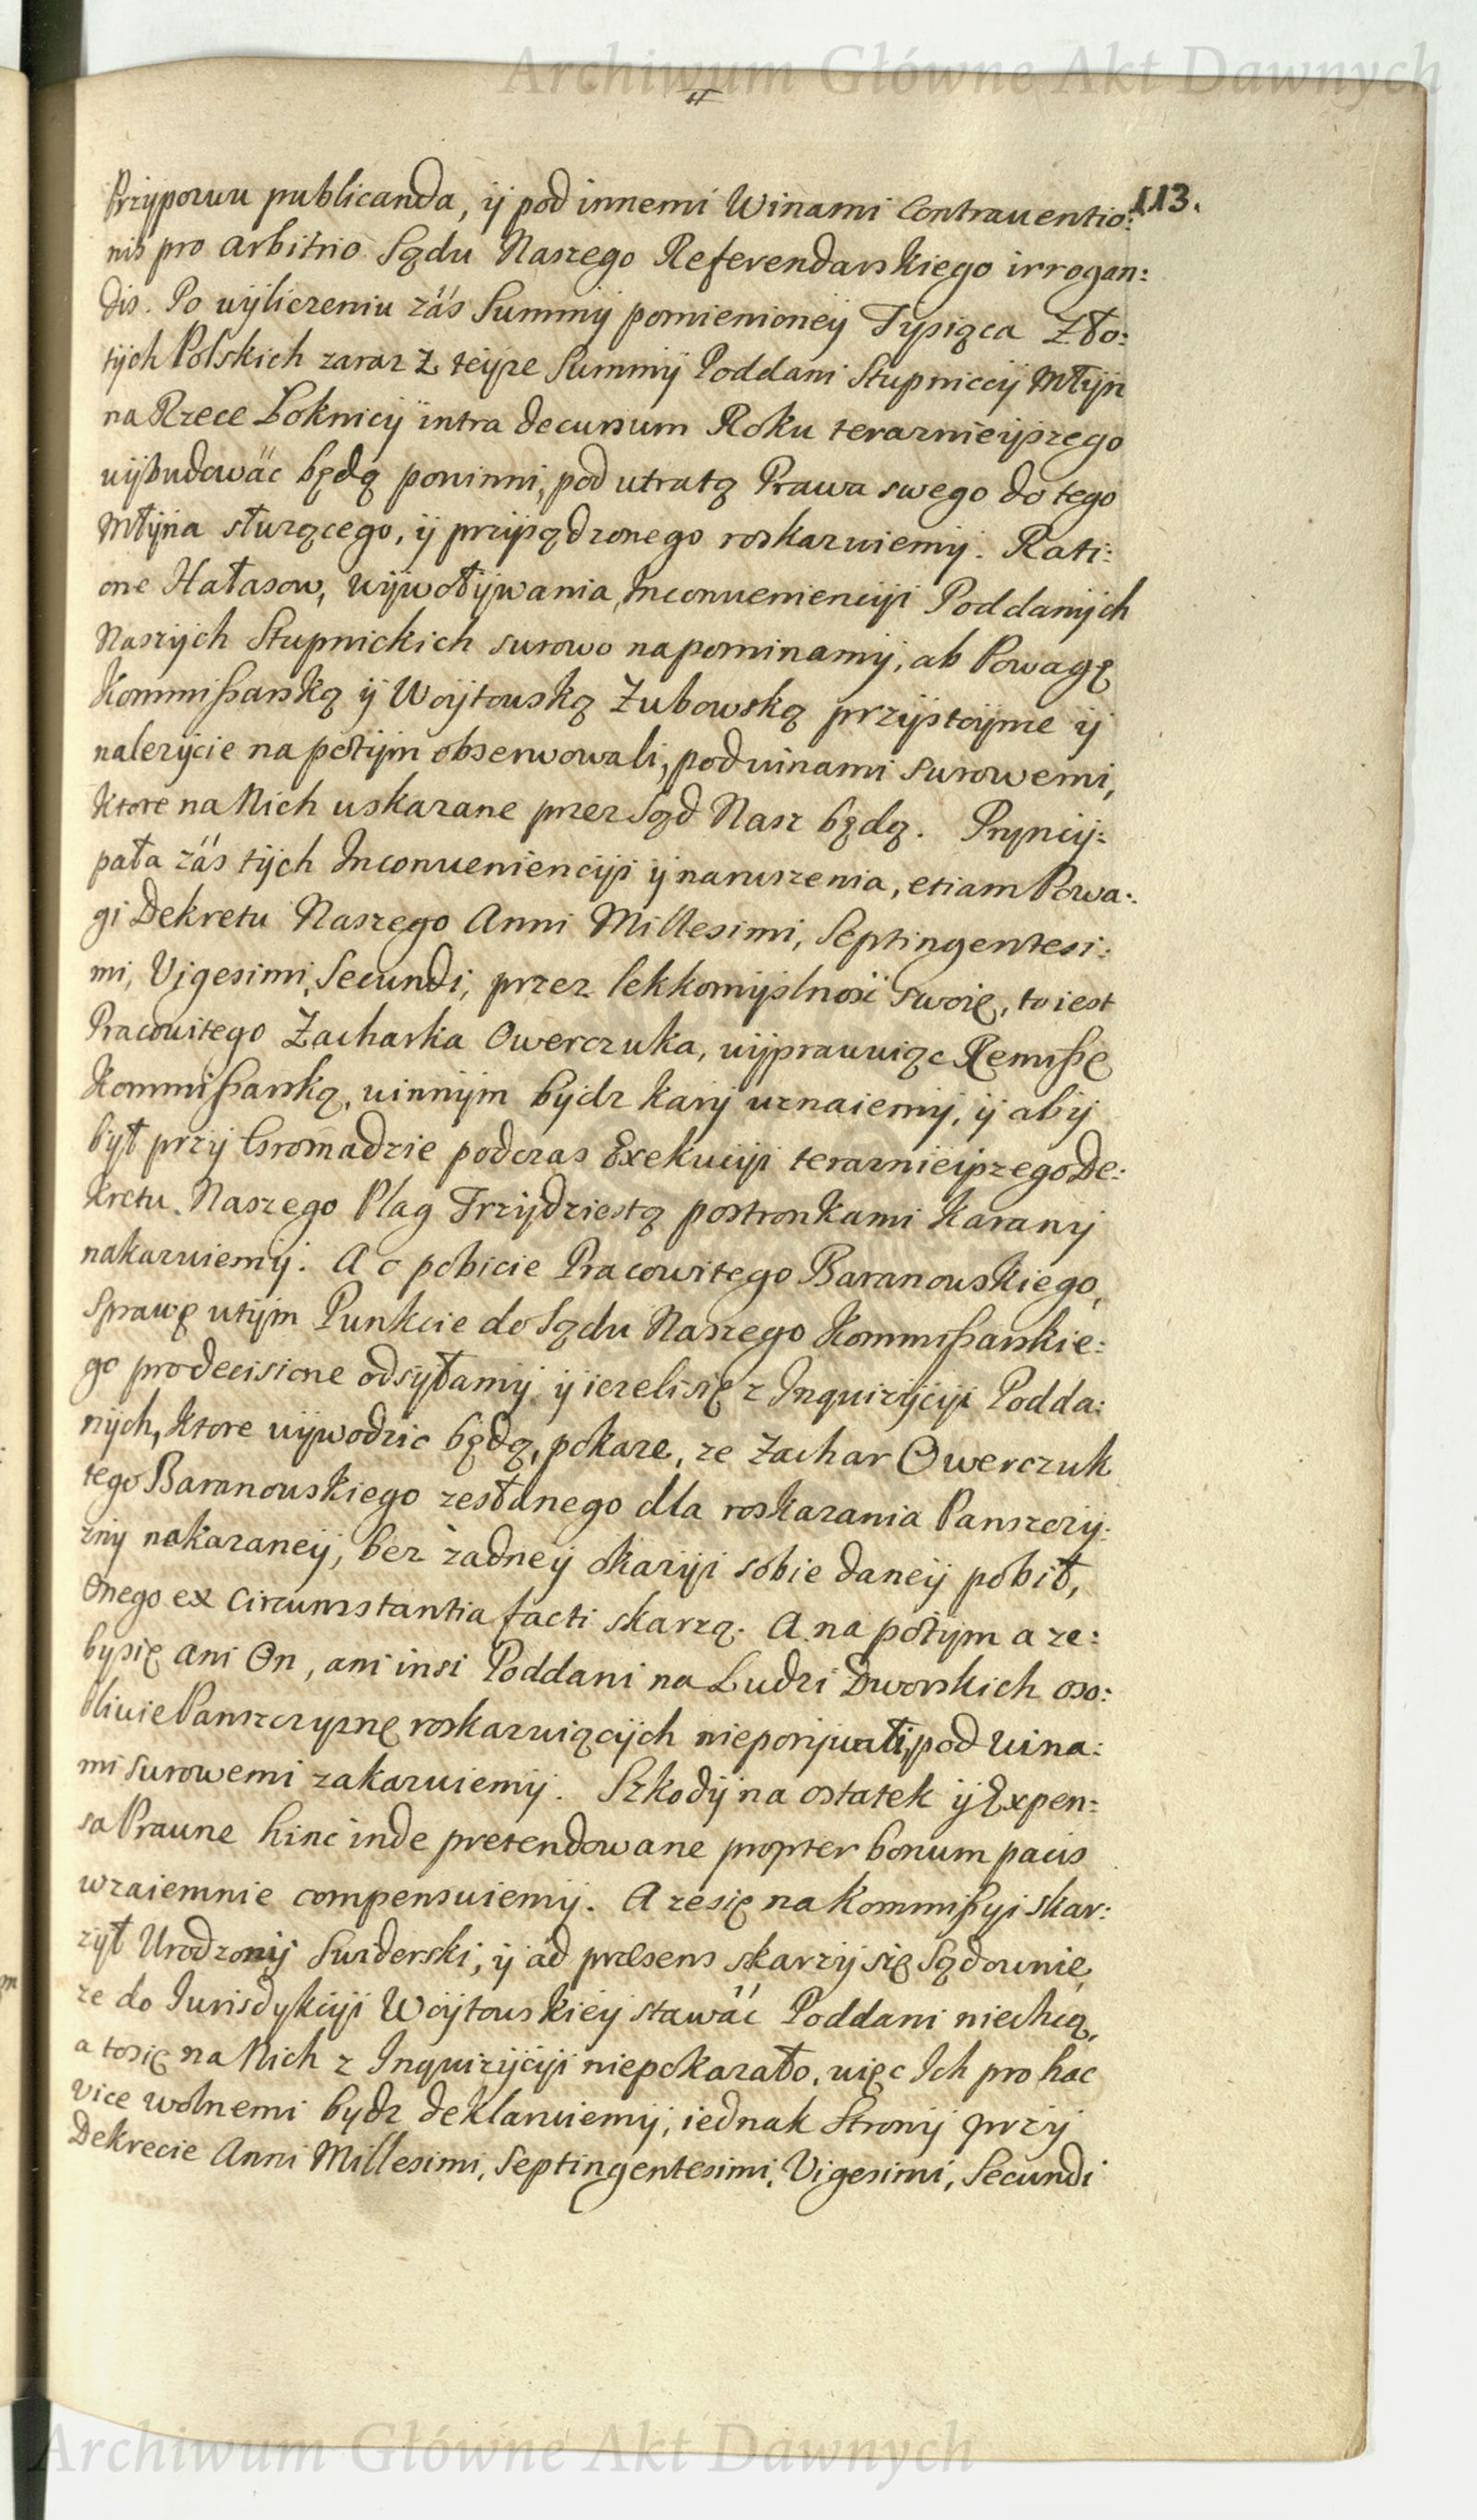 Archiwum Główne Akt Dawnych
113.
Przypozwu publicanda, ÿ pod innemi Winami Contrauentio:
nis pro arbitrio Sądu Naszego Referendarskiego irrogan:
dis. Po wÿliczeniu zás Summÿ pomienioneÿ Tysiąca Zło:
tÿch Polskich zaraz z teÿze Summÿ Poddani Stupniccÿ Młÿn
na Rzece Łoknicÿ intra decursum Roku terazniеÿszego
wÿbudowác będą powinni, pod utratą Prawa swego do tego
Młÿna słuzącego, ÿ przÿsądzonego roskazuiemÿ. Rati:
one Hałasow, wÿwołÿwania, Inconuenienciÿi Poddanÿch
Naszÿch Stupnickich surowo napominamÿ, ab Powagę
Kommißarską ÿ Woÿtouską Zubowską przÿstoÿnie ÿ
nalezÿcie napotÿm obserwowali, pod winami surowemi,
ktore na Nich uskazane przez Sąd Nasz będą. Prÿncÿ:
pała zás tÿch Inconuenienciÿi ÿ naruszenia, etiam Powa:
gi Dekretu Naszego Anni Millesimi, Septingentesi:
mi, Vigesimi, Secundi, przez lekkomÿslnosć swoię, to iest
Pracouitego Zacharka Owerczuka, wÿprauuiąc Remißę
Kommißarską, uinnÿm bÿdz karÿ uznaiemÿ, ÿ abÿ
bÿł przÿ Gromadzie podczas Exekuciÿi terazniеÿszego De:
kretu Naszego Plag Trzÿdziestą postronkami karanÿ
nakazuiemÿ. A o pobicie Pracowitego Baranouskiego,
Sprawę w tÿm Punkcie do Sądu Naszego Kommißarskie:
go pro decisione odsÿłamÿ ÿ iezeli się z Inquizÿciÿi Podda:
nÿch, ktore wÿwodzic będą, pokaze, ze Zachar Owerczuk
tego Baranouskiego zesłanego dla roskazania Panszczÿ:
znÿ nakazaneÿ, bez zadneÿ okazÿi sobie daneÿ pobił,
Onego ex circumstantia facti skarzą. A na potÿm a ze:
by się ani On, ani insi Poddani na Ludzi Dworskich oso:
bliuie Panszczyznę roskazuiącÿch nieporÿwali, pod uina:
mi surowemi zakazuiemÿ. Szkodÿ na ostatek ÿ Expen:
sa Praune hinc inde pretendowane propter bonum pacis
wzaiemnie compensuiemÿ. A ze się na Kommißyi skar:
zÿł Urodzonÿ Swiderski, ÿ ad præsens skarzÿ się Sądownie,
ze do Iurisdykciÿi Woÿtouskieÿ stawác Poddani niechcą,
a to się na Nich z Inquizÿciÿi niepokazało, uięc Ich pro hac
vice wolnemi bydz deklaruiemÿ, iednak Stronÿ przÿ
Dekrecie Anni Millesimi, Septingentesimi, Vigesimi, Secundi
Archiwum Główne Akt Dawnych